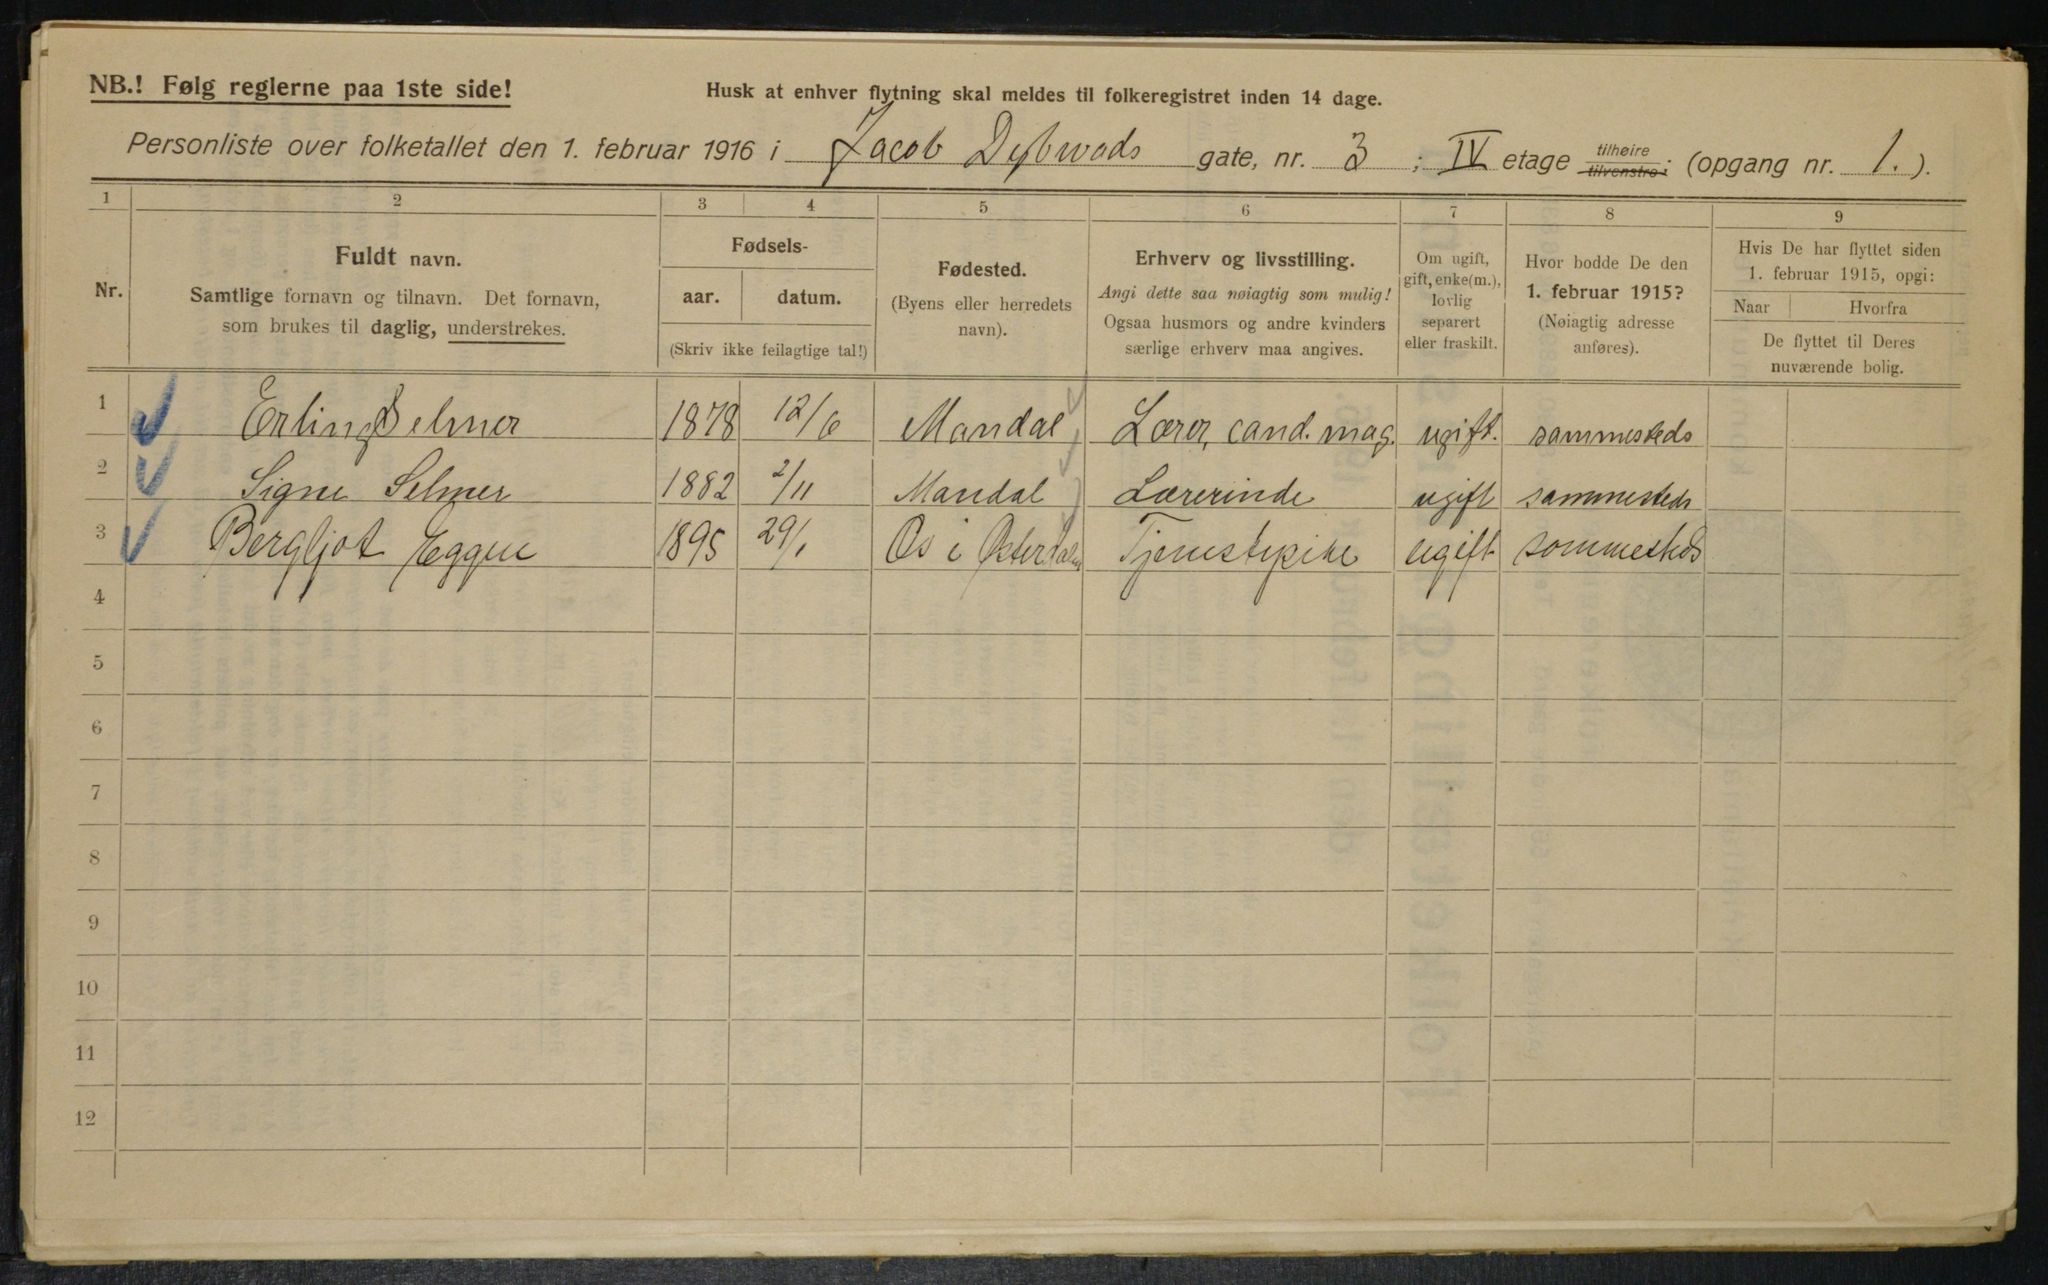 NB.! Følg reglerne paa 1ste side!
Husk at enhver flytning skal meldes til folkeregistret inden 14 dage.
Personliste over folketallet den 1. februar 1916 i Jacob Dybwads gate, nr. 3 ; IV etage tilhøire tilvenstre; (opgang nr. 1.).
1 2 3 4 5 6 7 8 9
Nr.
Fuldt navn.
Samtlige fornavn og tilnavn. Det fornavn,
som brukes til daglig, understrekes.
Fødsels-
aar. datum.
(Skriv ikke feilagtige tal!)
Fødested.
(Byens eller herredets
navn).
Erhverv og livsstilling.
Angi dette saa nøiagtig som mulig!
Ogsaa husmors og andre kvinders
særlige erhverv maa angives.
Om ugift,
gift, enke(m.),
lovlig
separert
eller fraskilt.
Hvor bodde De den
1. februar 1915?
(Nøiagtig adresse
anføres).
Hvis De har flyttet siden
1. februar 1915, opgi:
Naar Hvorfra
De flyttet til Deres
nuværende bolig.
1 Erling Selmer 1878 12/6 Mandal Lærer, cand. mag. ugift. sammesteds
2 Signe Selmer 1882 2/11 Mandal Lærerinde ugift sammesteds
3 Bergljot Eggen 1895 29/1 Os i Østerdalen Tjenestepike ugift sammesteds
4
5
6
7
8
9
10
11
12